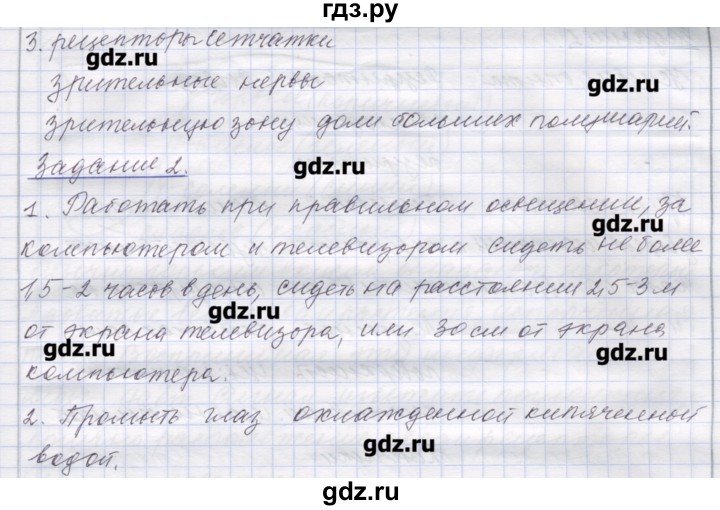 гдз.ру
3. рецепторы сетчатки
gdz.ru
зрительные нервы
gdz.ru
зрительную зону доли больших полушарий.
Задание 2.
gdz.ru
1. Работать при правильном освещении, за
gdz.ru
компьютером и телевизором сидеть не более
1,5-2 часов в день, сидеть на расстоянии 2,5-3 м
gdz.ru
от экрана телевизора, или 30 см от экрана
gdz.ru
gdz.ru
компьютера.
2. Промыть глаз охлажденной кипяченной
gdz.ru
водой.
gdz.ru